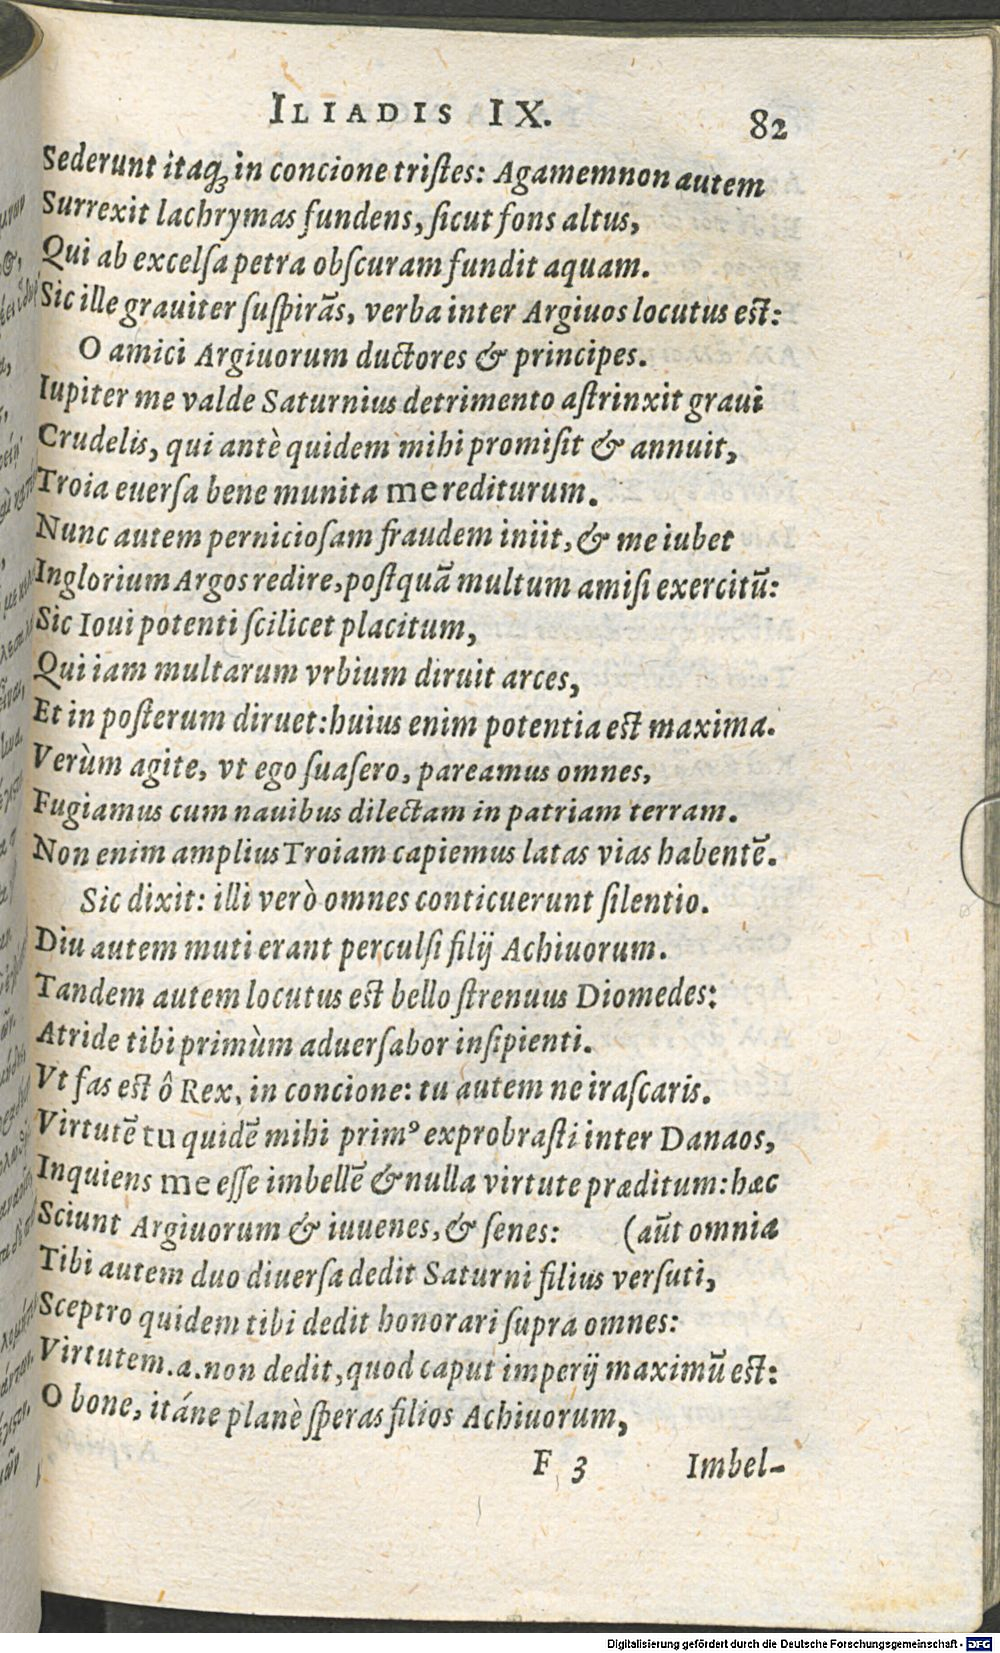 ILIADIS IX. 82
Sederunt itaq́ꝫ in concione tristes: Agamemnon autem
Surrexit lachrymas fundens, sicut fons altus,
Qui ab excelsa petra obscuram fundit aquam.
Sic ille grauiter suspirãs, verba inter Argiuos locutus est:
O amici Argiuorum ductores & principes.
Iupiter me valde Saturnius detrimento astrinxit graui
Crudelis, qui antè quidem mihi promisit & annuit,
Troia euersa bene munita me rediturum.
Nunc autem perniciosam fraudem iniit, & me iubet
Inglorium Argos redire, postquã multum amisi exercitũ:
Sic Ioui potenti scilicet placitum,
Qui iam multarum vrbium diruit arces,
Et in posterum diruet: huius enim potentia est maxima.
Verùm agite, vt ego suasero, pareamus omnes,
Fugiamus cum nauibus dilectam in patriam terram.
Non enim amplius Troiam capiemus latas vias habentẽ.
Sic dixit: illi verò omnes conticuerunt silentio.
Diu autem muti erant perculsi filij Achiuorum.
Tandem autem locutus est bello strenuus Diomedes:
Atride tibi primùm aduersabor insipienti.
Vt fas est ô Rex, in concione: tu autem ne irascaris.
Virtutẽ tu quidẽ mihi primꝰ exprobrasti inter Danaos,
Inquiens me esse imbellẽ & nulla virtute præditum: hæc
Sciunt Argiuorum & iuuenes, & senes: (aũt omnia
Tibi autem duo diuersa dedit Saturni filius versuti,
Sceptro quidem tibi dedit honorari supra omnes:
Virtutem .a. non dedit, quod caput imperij maximũ est:
O bone, itáne planè speras filios Achiuorum,
F 3 Imbel-
Digitalisierung gefördert durch die Deutsche Forschungsgemeinschaft - DFG